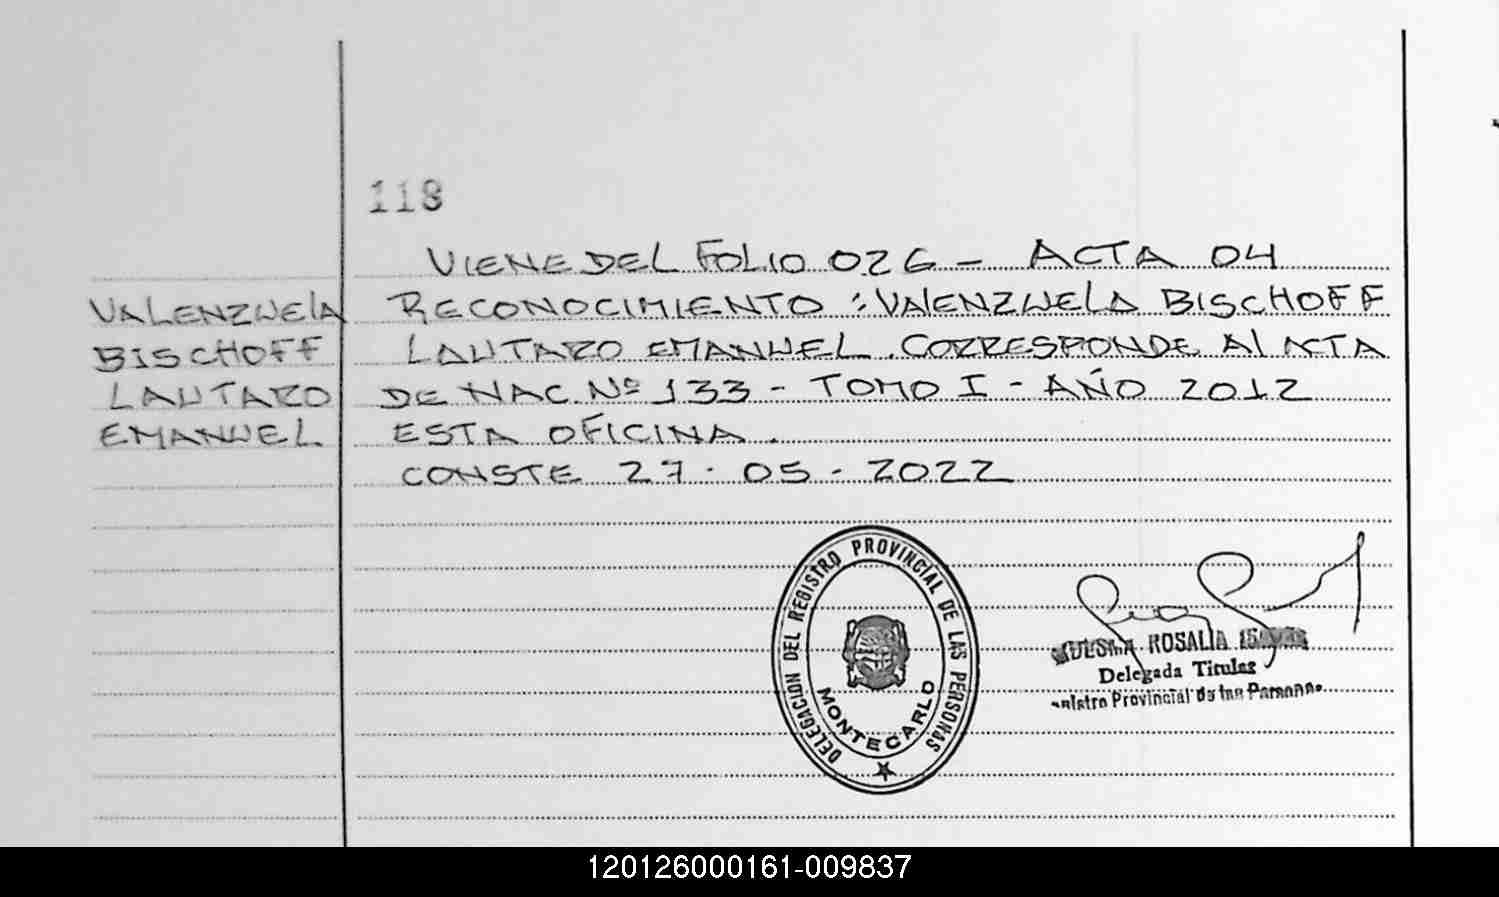 118
VIENE DEL FOLIO 026 - ACTA 04
VALENZUELA
BISCHOFF
LAUTARO
EMANUEL
RECONOCIMIENTO : VALENZUELA BISCHOFF
LAUTARO EMANUEL. CORRESPONDE AL ACTA
DE NAC. Nº 133 - TOMO I - AÑO 2012
ESTA OFICINA.
CONSTE 27-05-2022
DELEGACION DEL REGISTRO PROVINCIAL DE LAS PERSONAS
MONTECARLO
ROSALIA
Delegada Titular
Provincial de las Personas
120126000161-009837